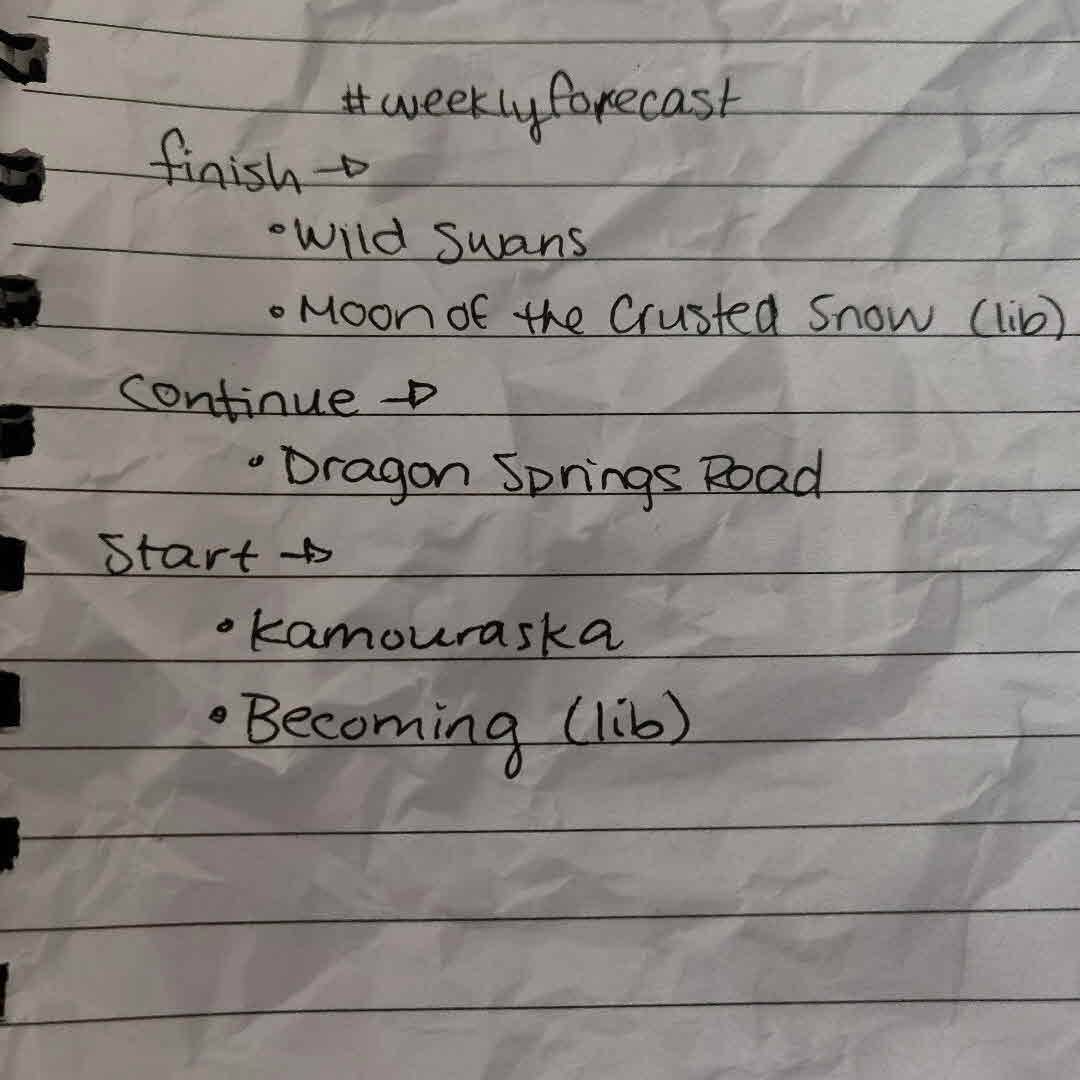 #weeklyforecast
finish →
• Wild Swans
• Moon of the Crusted Snow (lib)
Continue →
• Dragon Springs Road
Start →
• Kamouraska
• Becoming (lib)